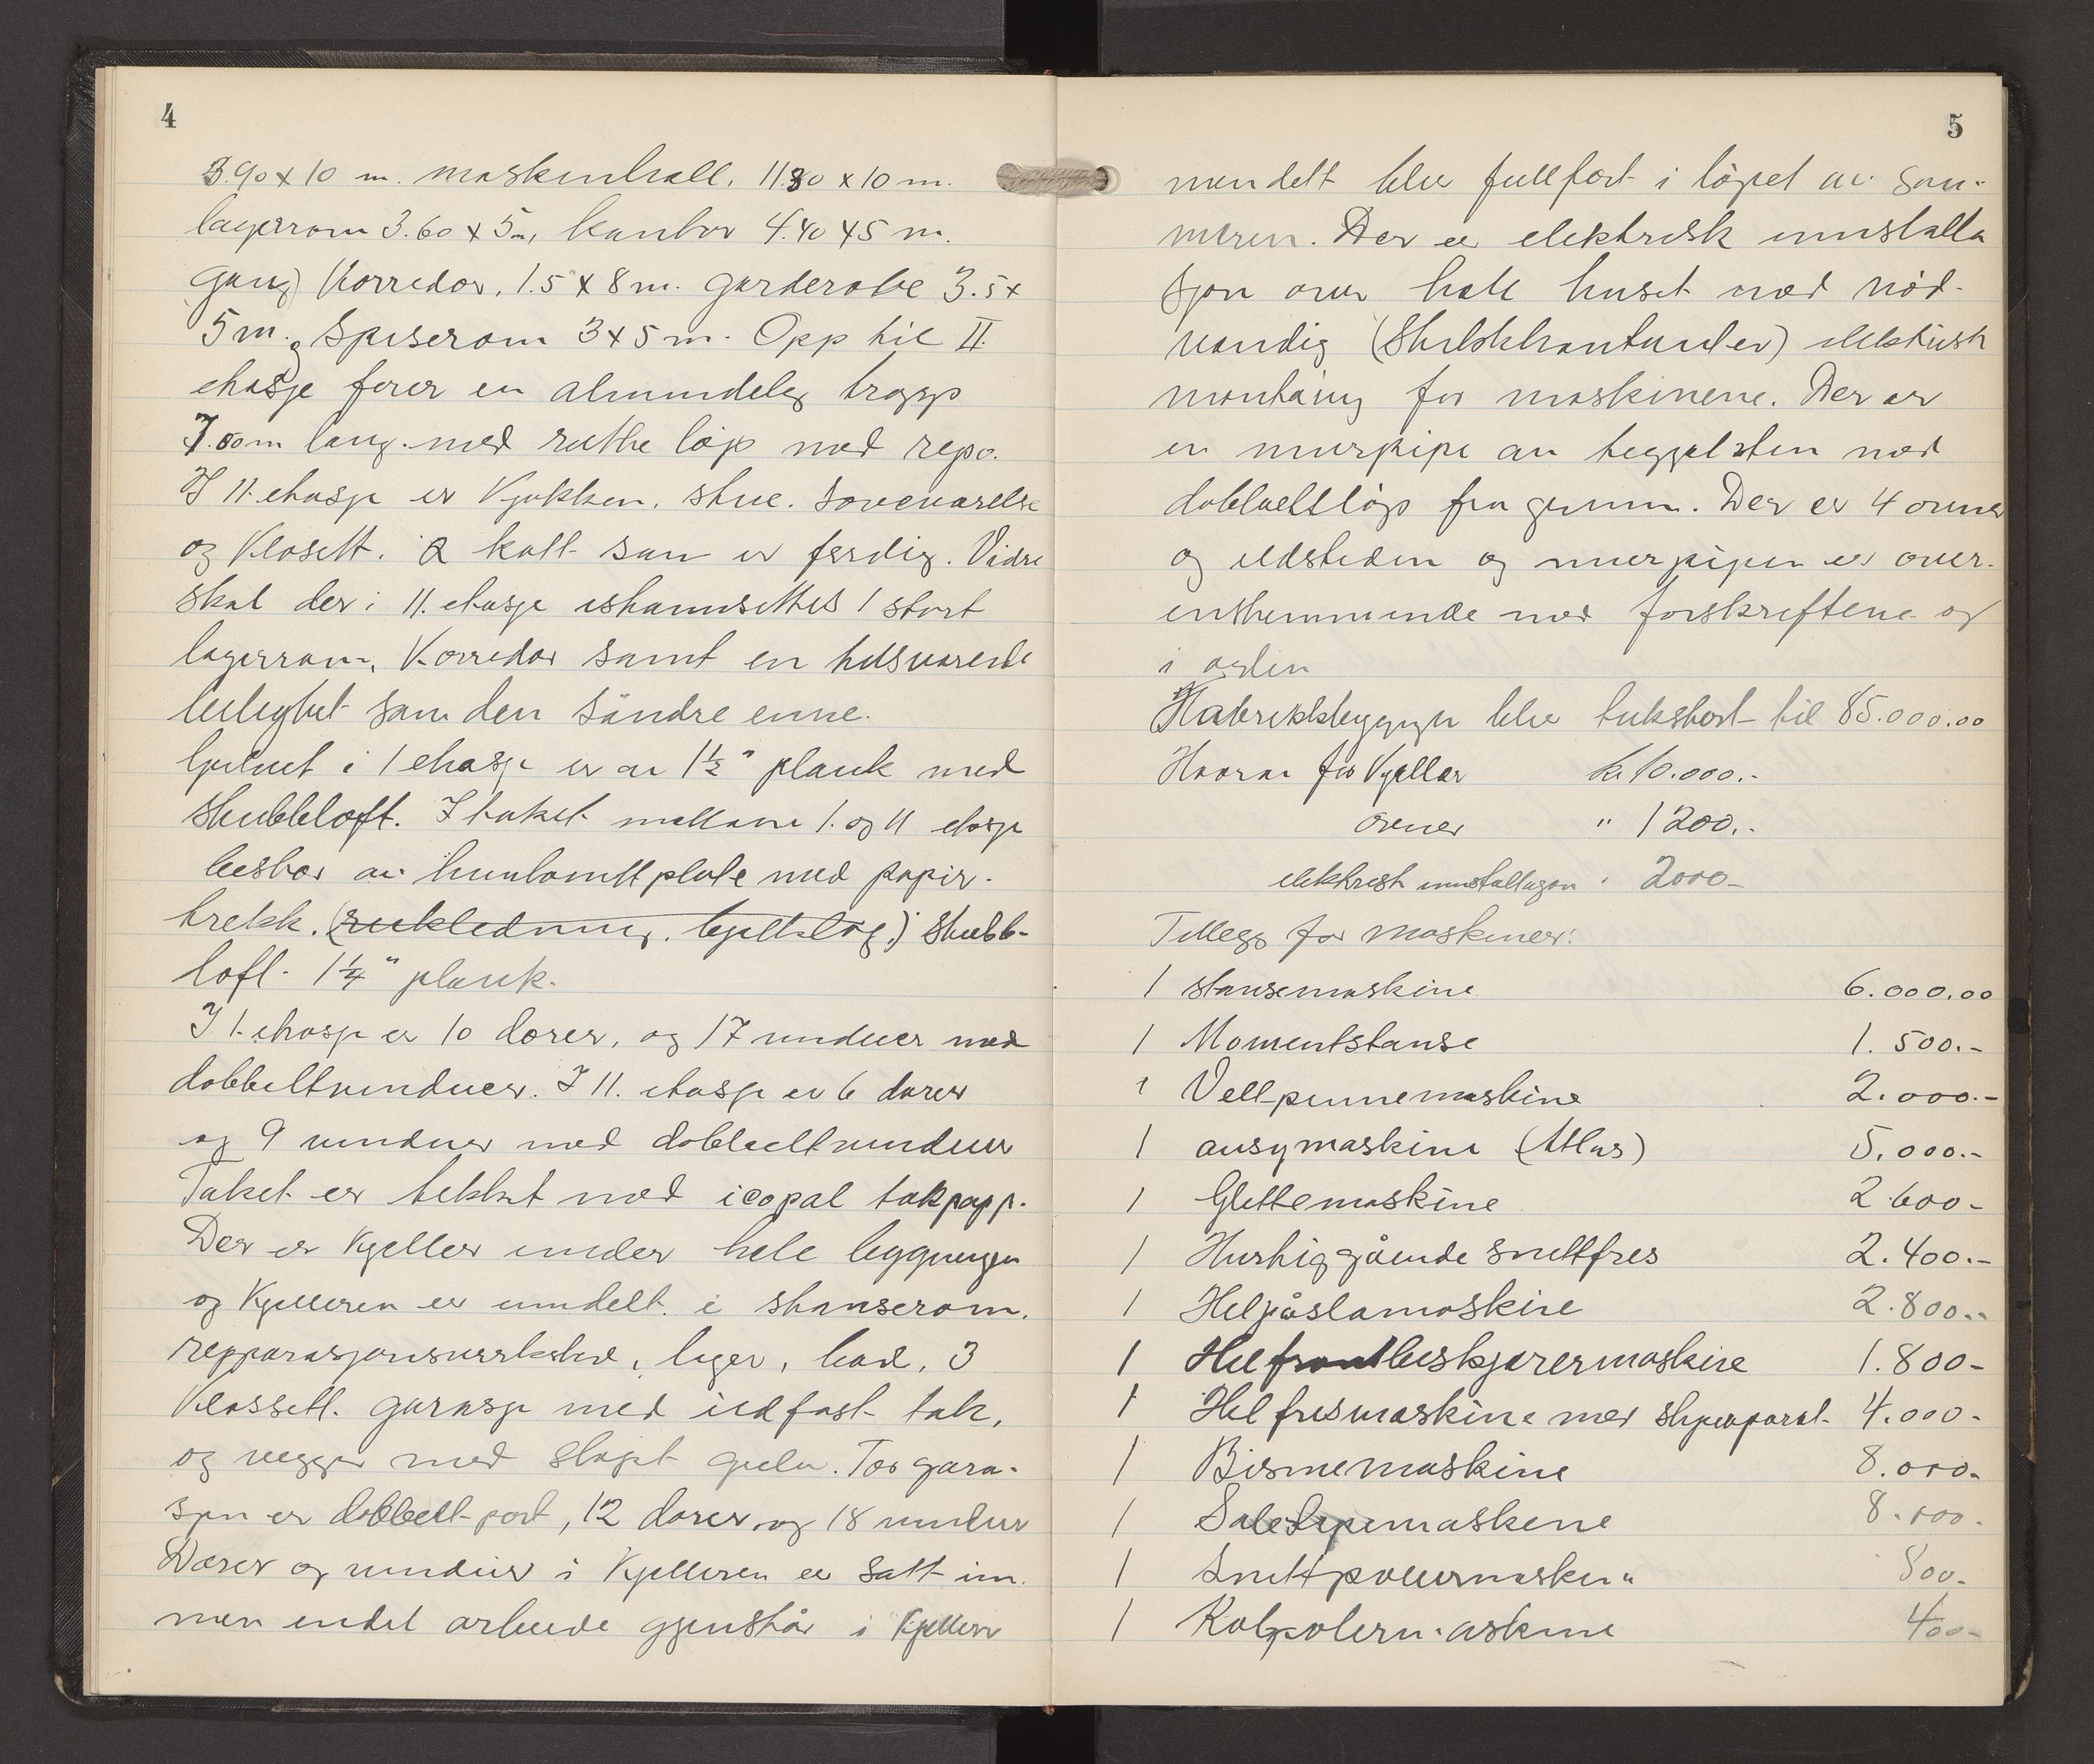 4
3.90 x 10 m. maskinhall. 11.30 x 10 m.
lagerrom 3.60 x 5 m, kontor 4.40 x 5 m.
gang) Korredor, 1.5 x 8 m. garderobe 3.5 x
5 m. og Spiserom 3 x 5 m. Opp til II.
etasje fører en almindeleg trapp
7.00 m lang. med rette løp med repo.
I 11. etasje er Kjøkken. stue. Soveværelse
og Klosett. 2 kott som er ferdig. Vidre
skal der i 11. etasje istannsettes 1 stort
lagerrom, Korredor samt en tilsvarende
leilighet som den søndre enne.
Gulvet i 1 etasje er av 1½" plank med
stubbloft. I taket mellom 1. og 11 etasje
bestor av huntonittplate med papir-
trekk. (rukledning. Gyltslag.) Stubb-
loft. 1¼" plank.
I 1. etasje er 10 dører, og 17 vinduer med
dobbeltvinduer. I 11. etasje er 6 dører
og 9 vinduer med dobbeltvinduer
Taket er tekket med icopal takpapp.
Der er Kjeller under hele byggningen
og Kjelleren er inndelt i stanserom.
repparasjonsverksted, lager, bad, 3
Klossett. garasje med ildfast tak,
og vegger med støpt gulv. For gara-
sjen er dobbelt port, 12 dører og 18 vinduer
Dører og vinduer i Kjelleren er satt inn.
men endel arbeide gjenstår i Kjelleren
5
men dett blir fullført i løpet av som-
meren. Der er elektrisk innstalla
sjon over hele huset med nød-
vendig (Stikkkontankter) elektrisk
montæring for maskinene. Der er
en murpipe av teggelsten med
dobbeltløp fra grunn. Der er 4 ovner
og ildsteden og murpipen er over-
enstemmende med forskreftene og
i orden
Fabrikkbyggngn blir takstert til 85.000.00
Hvorav for Kjeller kr 10.000.-
ovner " 1200.-
elektrisk innstallasjon " 2000-
Tillegg for maskiner:
1 stansemaskine 6.000.00
1 Momentstanse 1.500.-
1 Vellpinnemaskine 2.000.-
1 ausymaskine (Atlas) 5.000.-
1 Glettemaskine 2.600-
1 Hurtiggående snittfres 2.400.-
1 Helpåslamaskine 2.800.-
1 Hel front beskjærermaskine 1.800-
1 Hel fresmaskine med slipeaparat- 4.000-
1 Bismemaskine 8.000-
1 Saleslipemaskine 8.000-
1 Snittpolermaskin 800-
1 Kolpolermaskine 400-